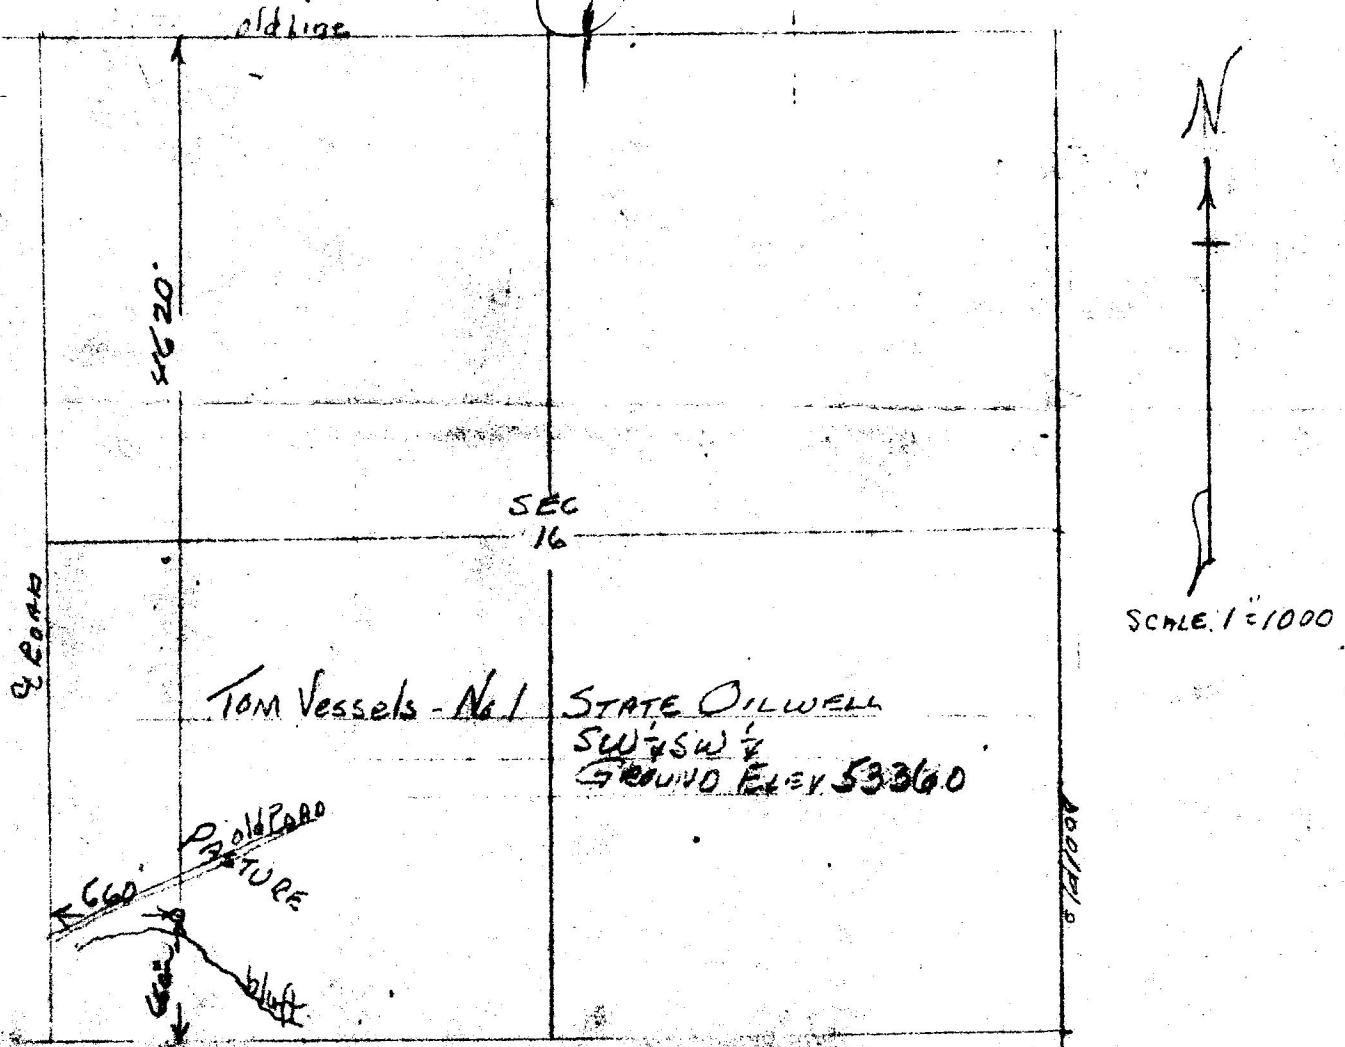 old Line
N
4620'
SEC
16
℄ ROAD
SCALE 1"=1000
Tom Vessels - No 1 STATE OILWELL
SW ¼ SW ¼
GROUND ELEV 5336.0
old ROAD
PASTURE
660'
660'
bluff